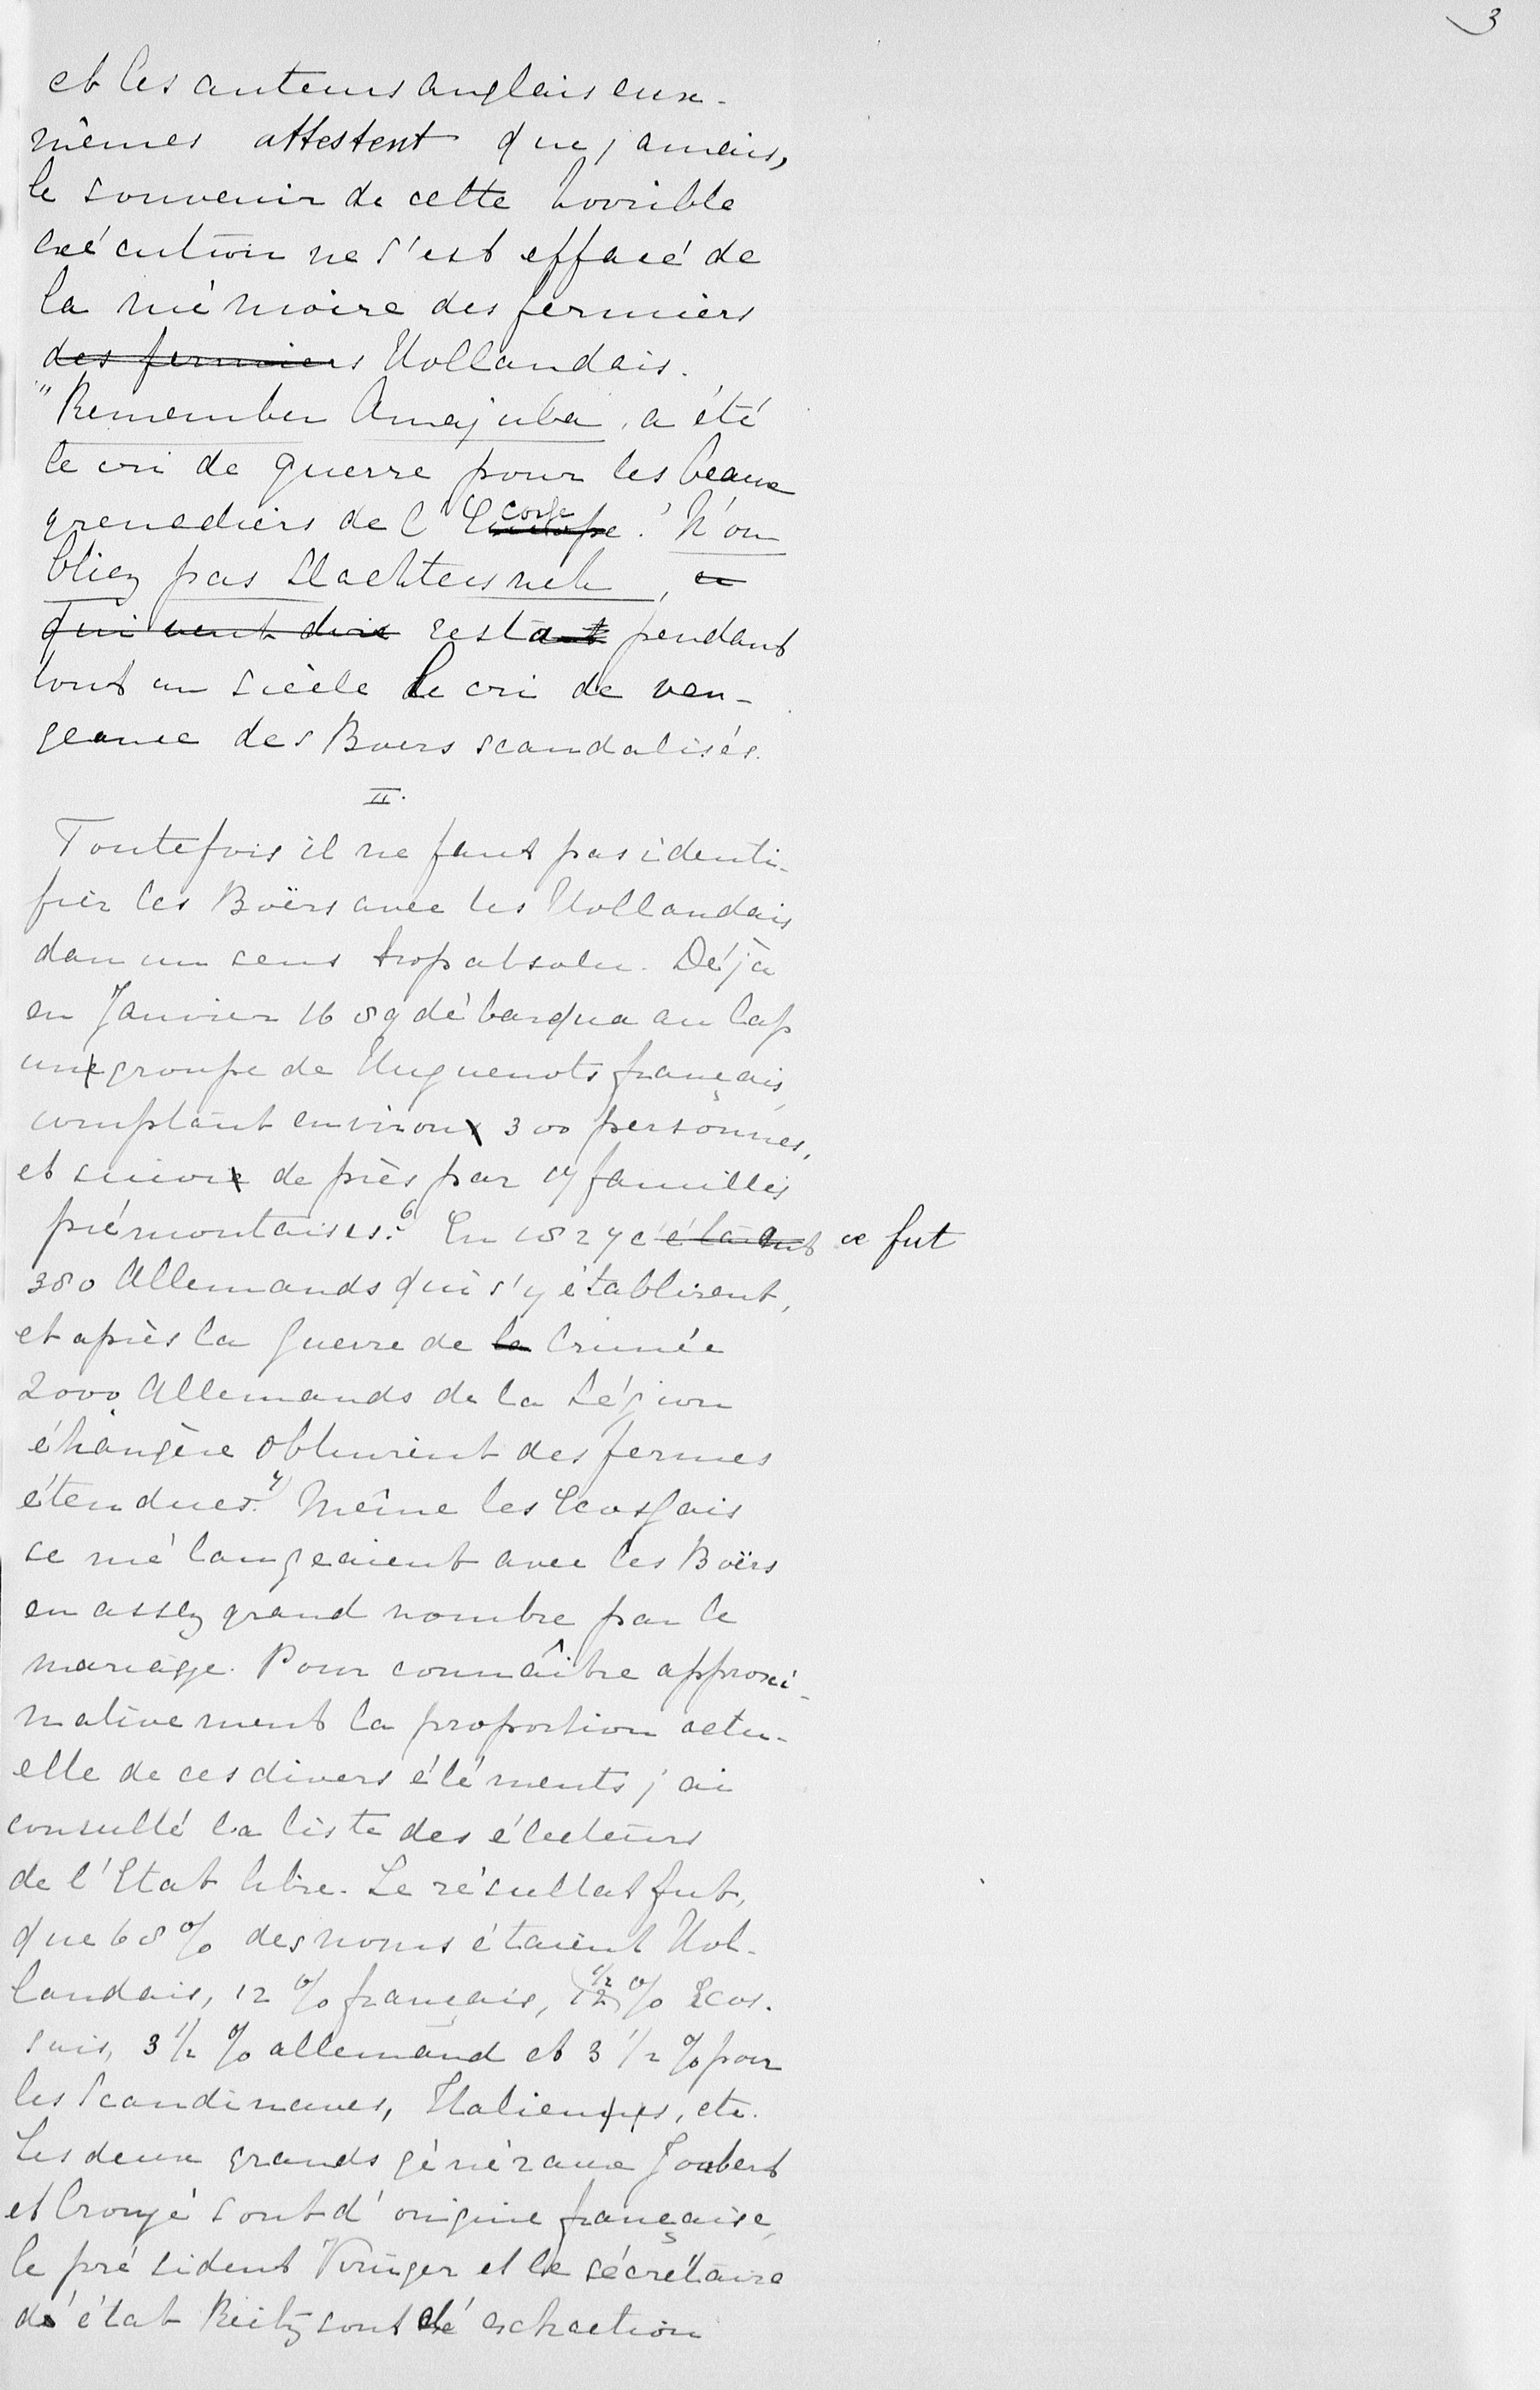 3
et les auteurs anglais eux-
mêmes attestent que jamais,
le souvenir de cette horrible
exécution ne s'est effacé de
la mémoire des fermiers
des fermiers Hollandais.
"Remember Amajuba, a été
le cri de guerre pour les beaux
grenadiers de l'Ecosse. N'ou
bliez pas Slachtersnek, ce
qui veut dire restant pendant
tout un siècle le cri de ven-
geance des Boers scandalisés.
II.
Toutefois il ne faut pas identi-
fier les Boërs avec les Hollandais
dan un sens trop absolu. Déjà
en Janvier 1689 débarqua au Cap
une groupe de Huguenots français,
comptant environ 300 personnes,
et suivie de près par 17 familles
piémontaises.6 En 1827 c'étaient ce fut
380 Allemands qui s'y établirent,
et après la guerre de la Crimée
2000 Allemands de la Légion
étrangère obtinrent des fermes
étendues.7) Même les Ecossais
se mélangeaient avec les Boërs
en assez grand nombre par le
mariage. Pour connaître approxi-
mativement la proportion actu-
elle de ces divers éléments j'ai
consulté la liste des électeurs
de l'Etat libre. Le résultat fut,
que 68% des noms étaient Hol-
landais, 12% français, 12 1/2 % Ecos-
sais, 3 1/2 % allemand et 3 1/2 % pour
les Scandinaves, Italiens, etc.
Les deux grands généraux Joubert
et Cronjé sont d'origine française,
le président Krüger et le sécrétaire
d'état Reitz sont d'extraction